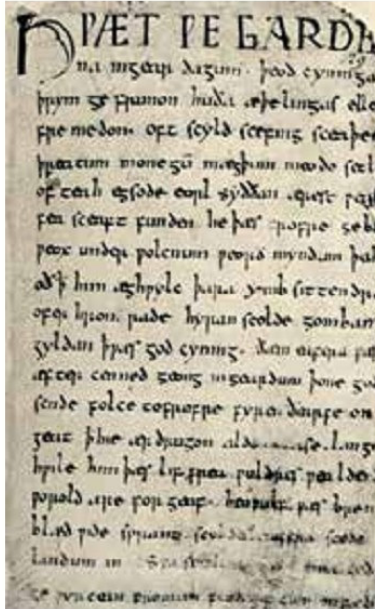 HǷÆT ǷE GARDE
na in geardagum. þeod cyninga
þrym ge frunon huða æþelingas elle
fre medon. oft scyld scefing sceaþe
þreatum monegū mægþum meodo setl
of teah egsode eorl syððan ærest
fea sceaft funden he þæs frofre geb
ƿeox under ƿolcnum ƿeorð myndum þah
oð þ him æghƿylc þara ymb sittendra
ofer hron rade hyran scolde gomban
gyldan þæt god cyning. ðæm eafera
æfter cenned geong in geardum þone god
sende folce tofrofre fyren ðearfe on
geat þ hie ær drugon aldor ase. lange
hƿile him þæs lif frea ƿuldres ƿealde
ƿorold are for geaf. beoƿulf ƿæs brem
blæd ƿide sprang scyldes eafera scede
landum in
ge ƿyrcean fromum feoh